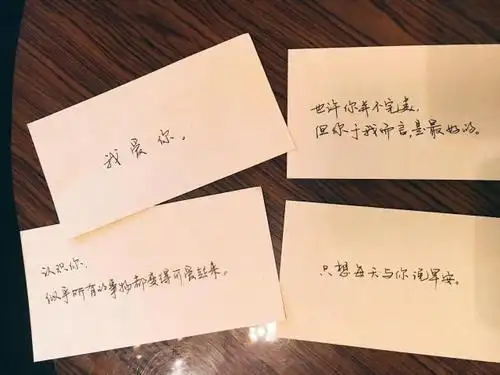 我爱你。
也许你并不完美,
但你于我而言,是最好的。
认识你:
似乎所有的事物都变得可爱起来。
只想每天与你说早安。